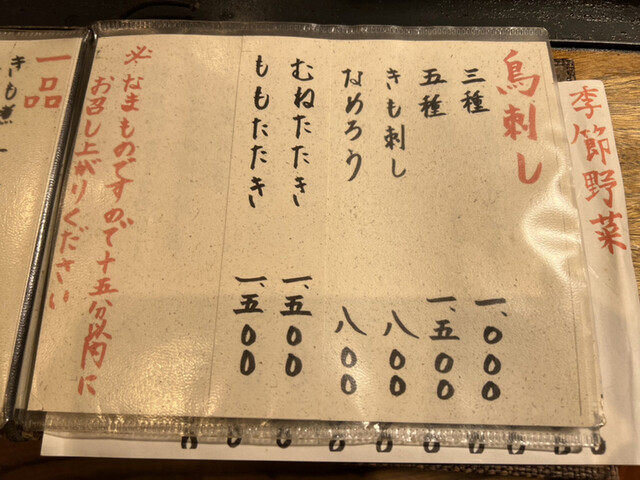 季節野菜
鳥刺し
三種 一、〇〇〇
五種 一、五〇〇
きも刺し 八〇〇
なめろう 八〇〇
むねたたき 一、五〇〇
ももたたき 一、五〇〇
※なまものですので十五分以内に
お召し上がりください
一品
きも煮